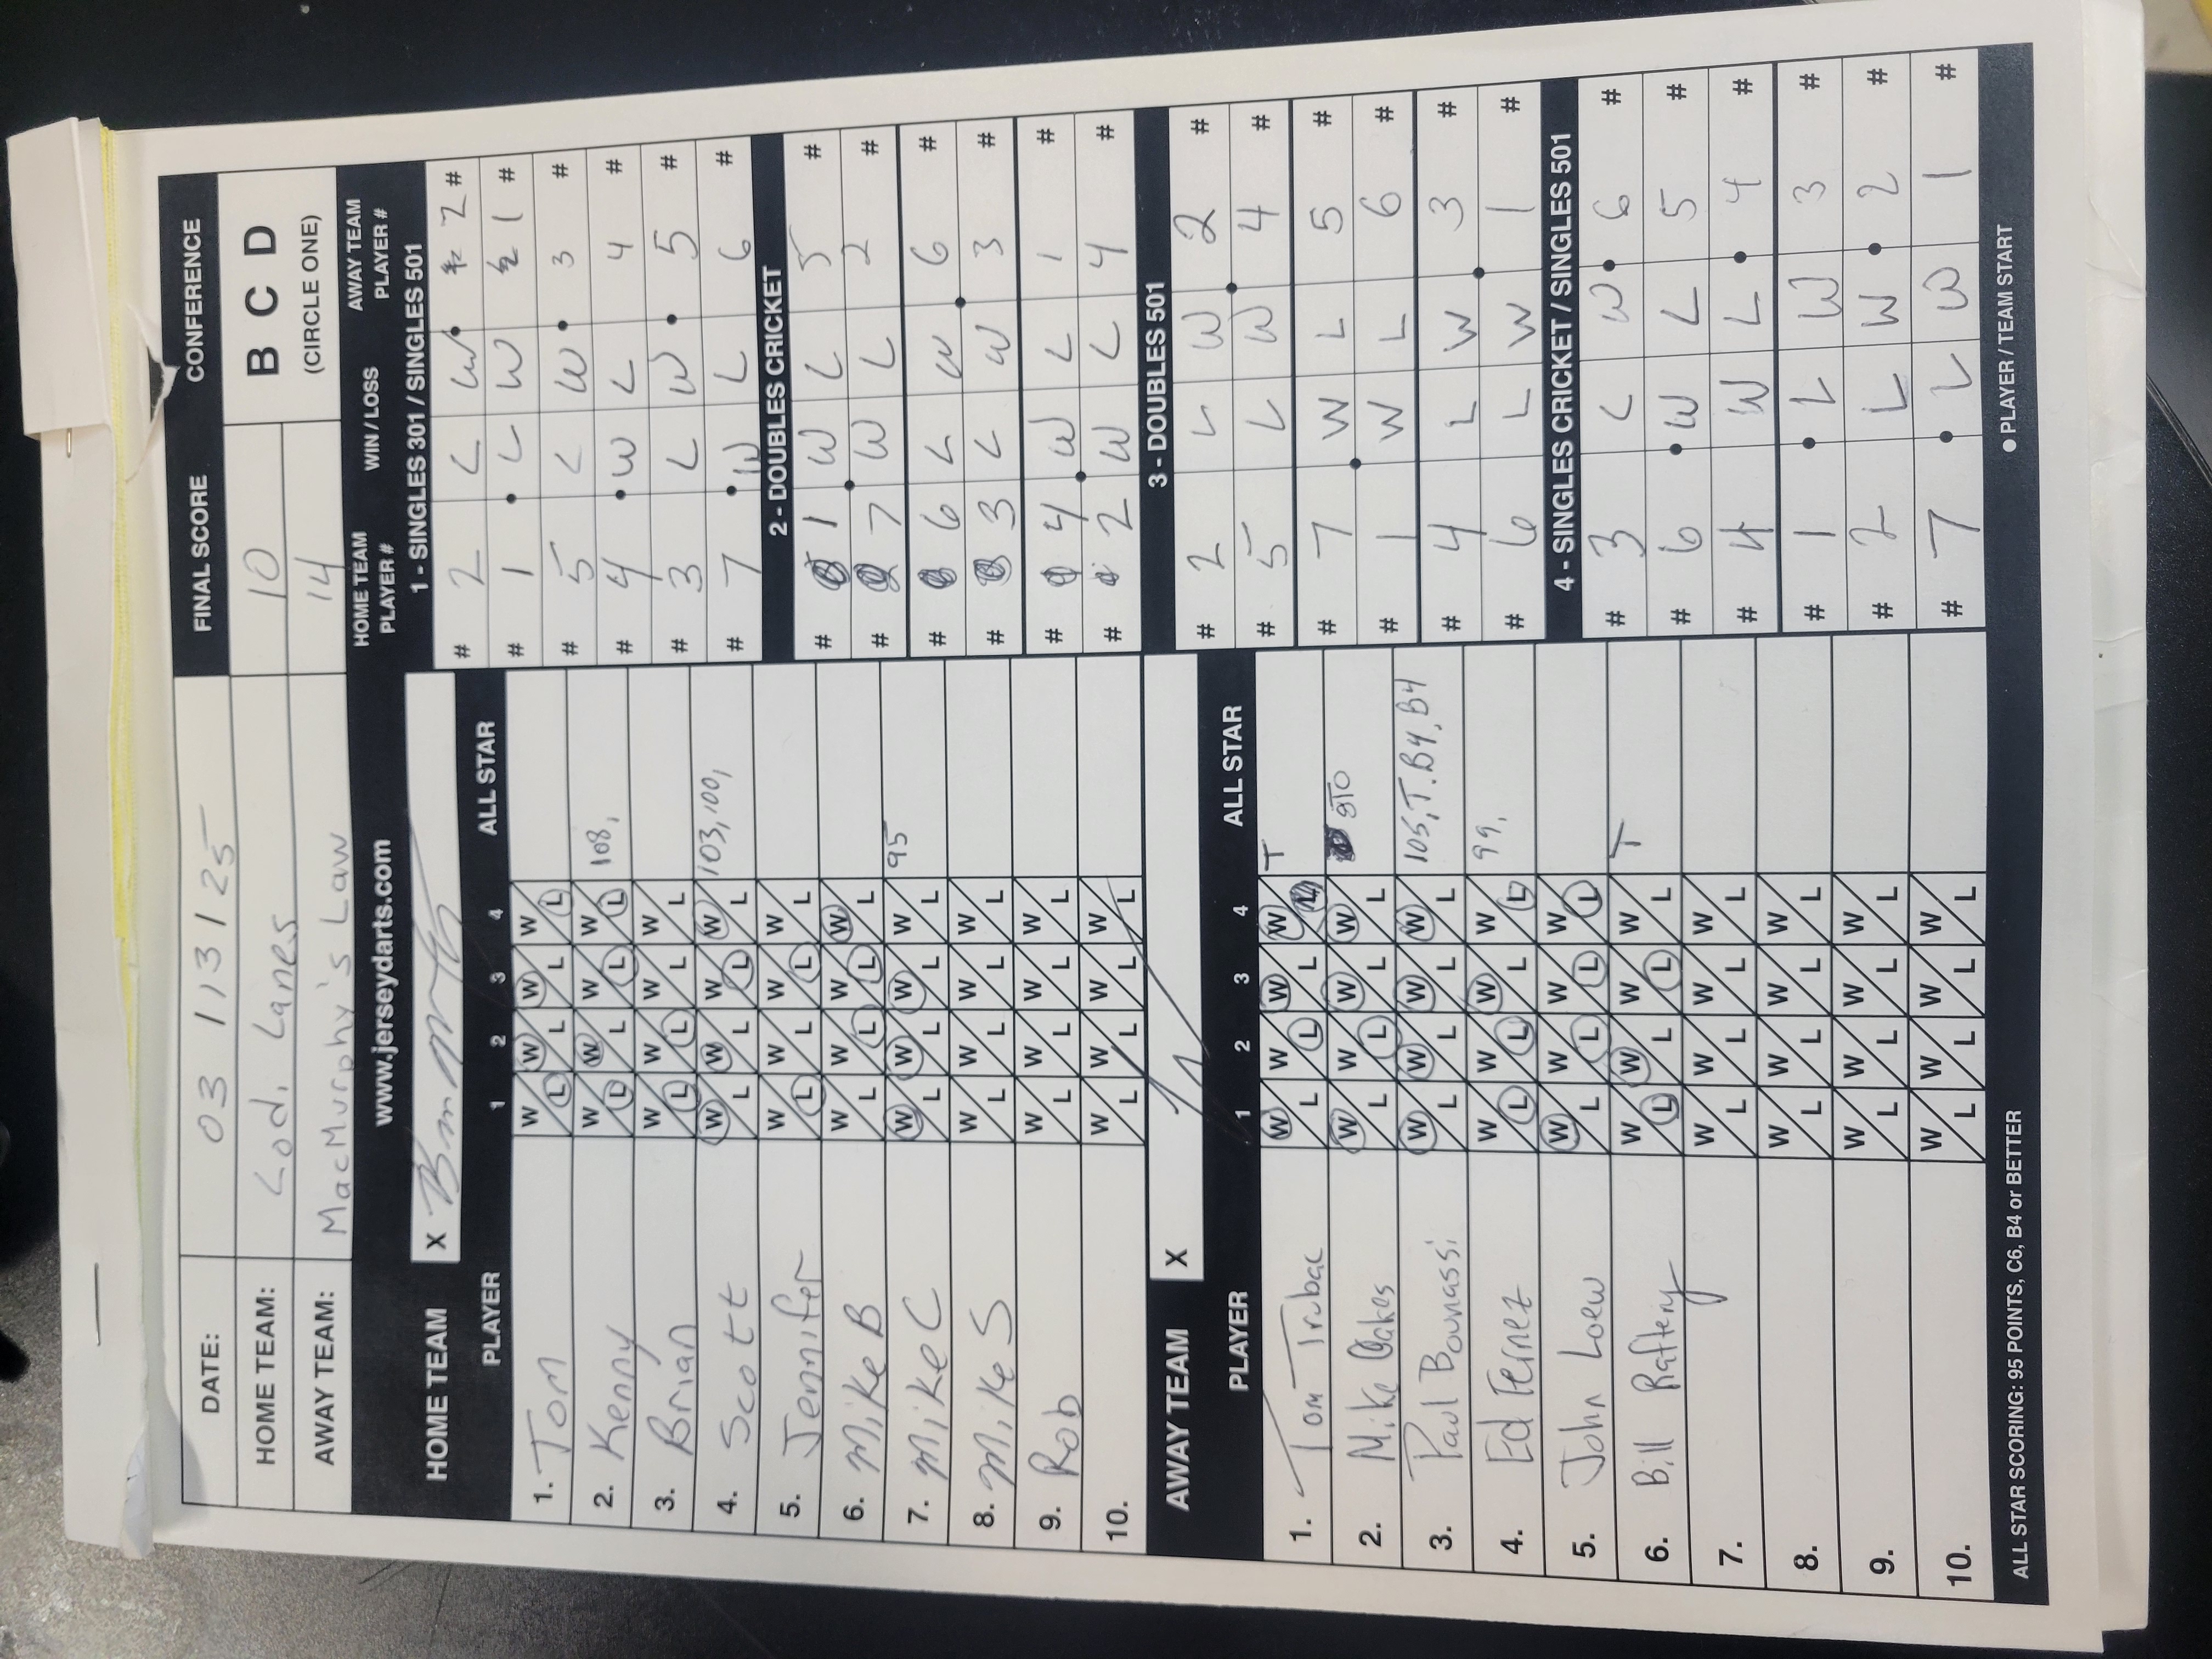 DATE: 03 / 13 / 25 FINAL SCORE CONFERENCE
HOME TEAM: Lodi Lanes 10 B C D
AWAY TEAM: MacMurphy's Law 14 (CIRCLE ONE)
www.jerseydarts.com
HOME TEAM X
PLAYER 1 2 3 4 ALL STAR
1. Tom W L W L W L W L
2. Kenny W L W L W L W L 108,
3. Brian W L W L W L W L
4. Scott W L W L W L W L 103, 100,
5. Jennifer W L W L W L W L
6. Mike B W L W L W L W L
7. Mike C W L W L W L W L 95
8. Mike S W L W L W L W L
9. Rob W L W L W L W L
10. W L W L W L W L
AWAY TEAM X
PLAYER 1 2 3 4 ALL STAR
1. Tom Trubac W L W L W L W L T
2. Mike Oakes W L W L W L W L STO
3. Paul Bounassi W L W L W L W L 105, T. B4, B4
4. Ed Fernez W L W L W L W L 99,
5. John Loew W L W L W L W L
6. Bill Raftery W L W L W L W L T
7. W L W L W L W L
8. W L W L W L W L
9. W L W L W L W L
10. W L W L W L W L
ALL STAR SCORING: 95 POINTS, C6, B4 or BETTER
HOME TEAM PLAYER # WIN / LOSS AWAY TEAM PLAYER #
1 - SINGLES 301 / SINGLES 501
# 2 L W 2 #
# 1 L W 1 #
# 5 L W 3 #
# 4 W L 4 #
# 3 L W 5 #
# 7 W L 6 #
2 - DOUBLES CRICKET
# 1 W L 5 #
# 7 W L 2 #
# 6 L W 6 #
# 3 L W 3 #
# 4 W L 1 #
# 2 W L 4 #
3 - DOUBLES 501
# 2 L W 2 #
# 5 L W 4 #
# 7 W L 5 #
# 1 W L 6 #
# 4 L W 3 #
# 6 L W 1 #
4 - SINGLES CRICKET / SINGLES 501
# 3 L W 6 #
# 6 W L 5 #
# 4 W L 4 #
# 1 L W 3 #
# 2 L W 2 #
# 7 L W 1 #
● PLAYER / TEAM START